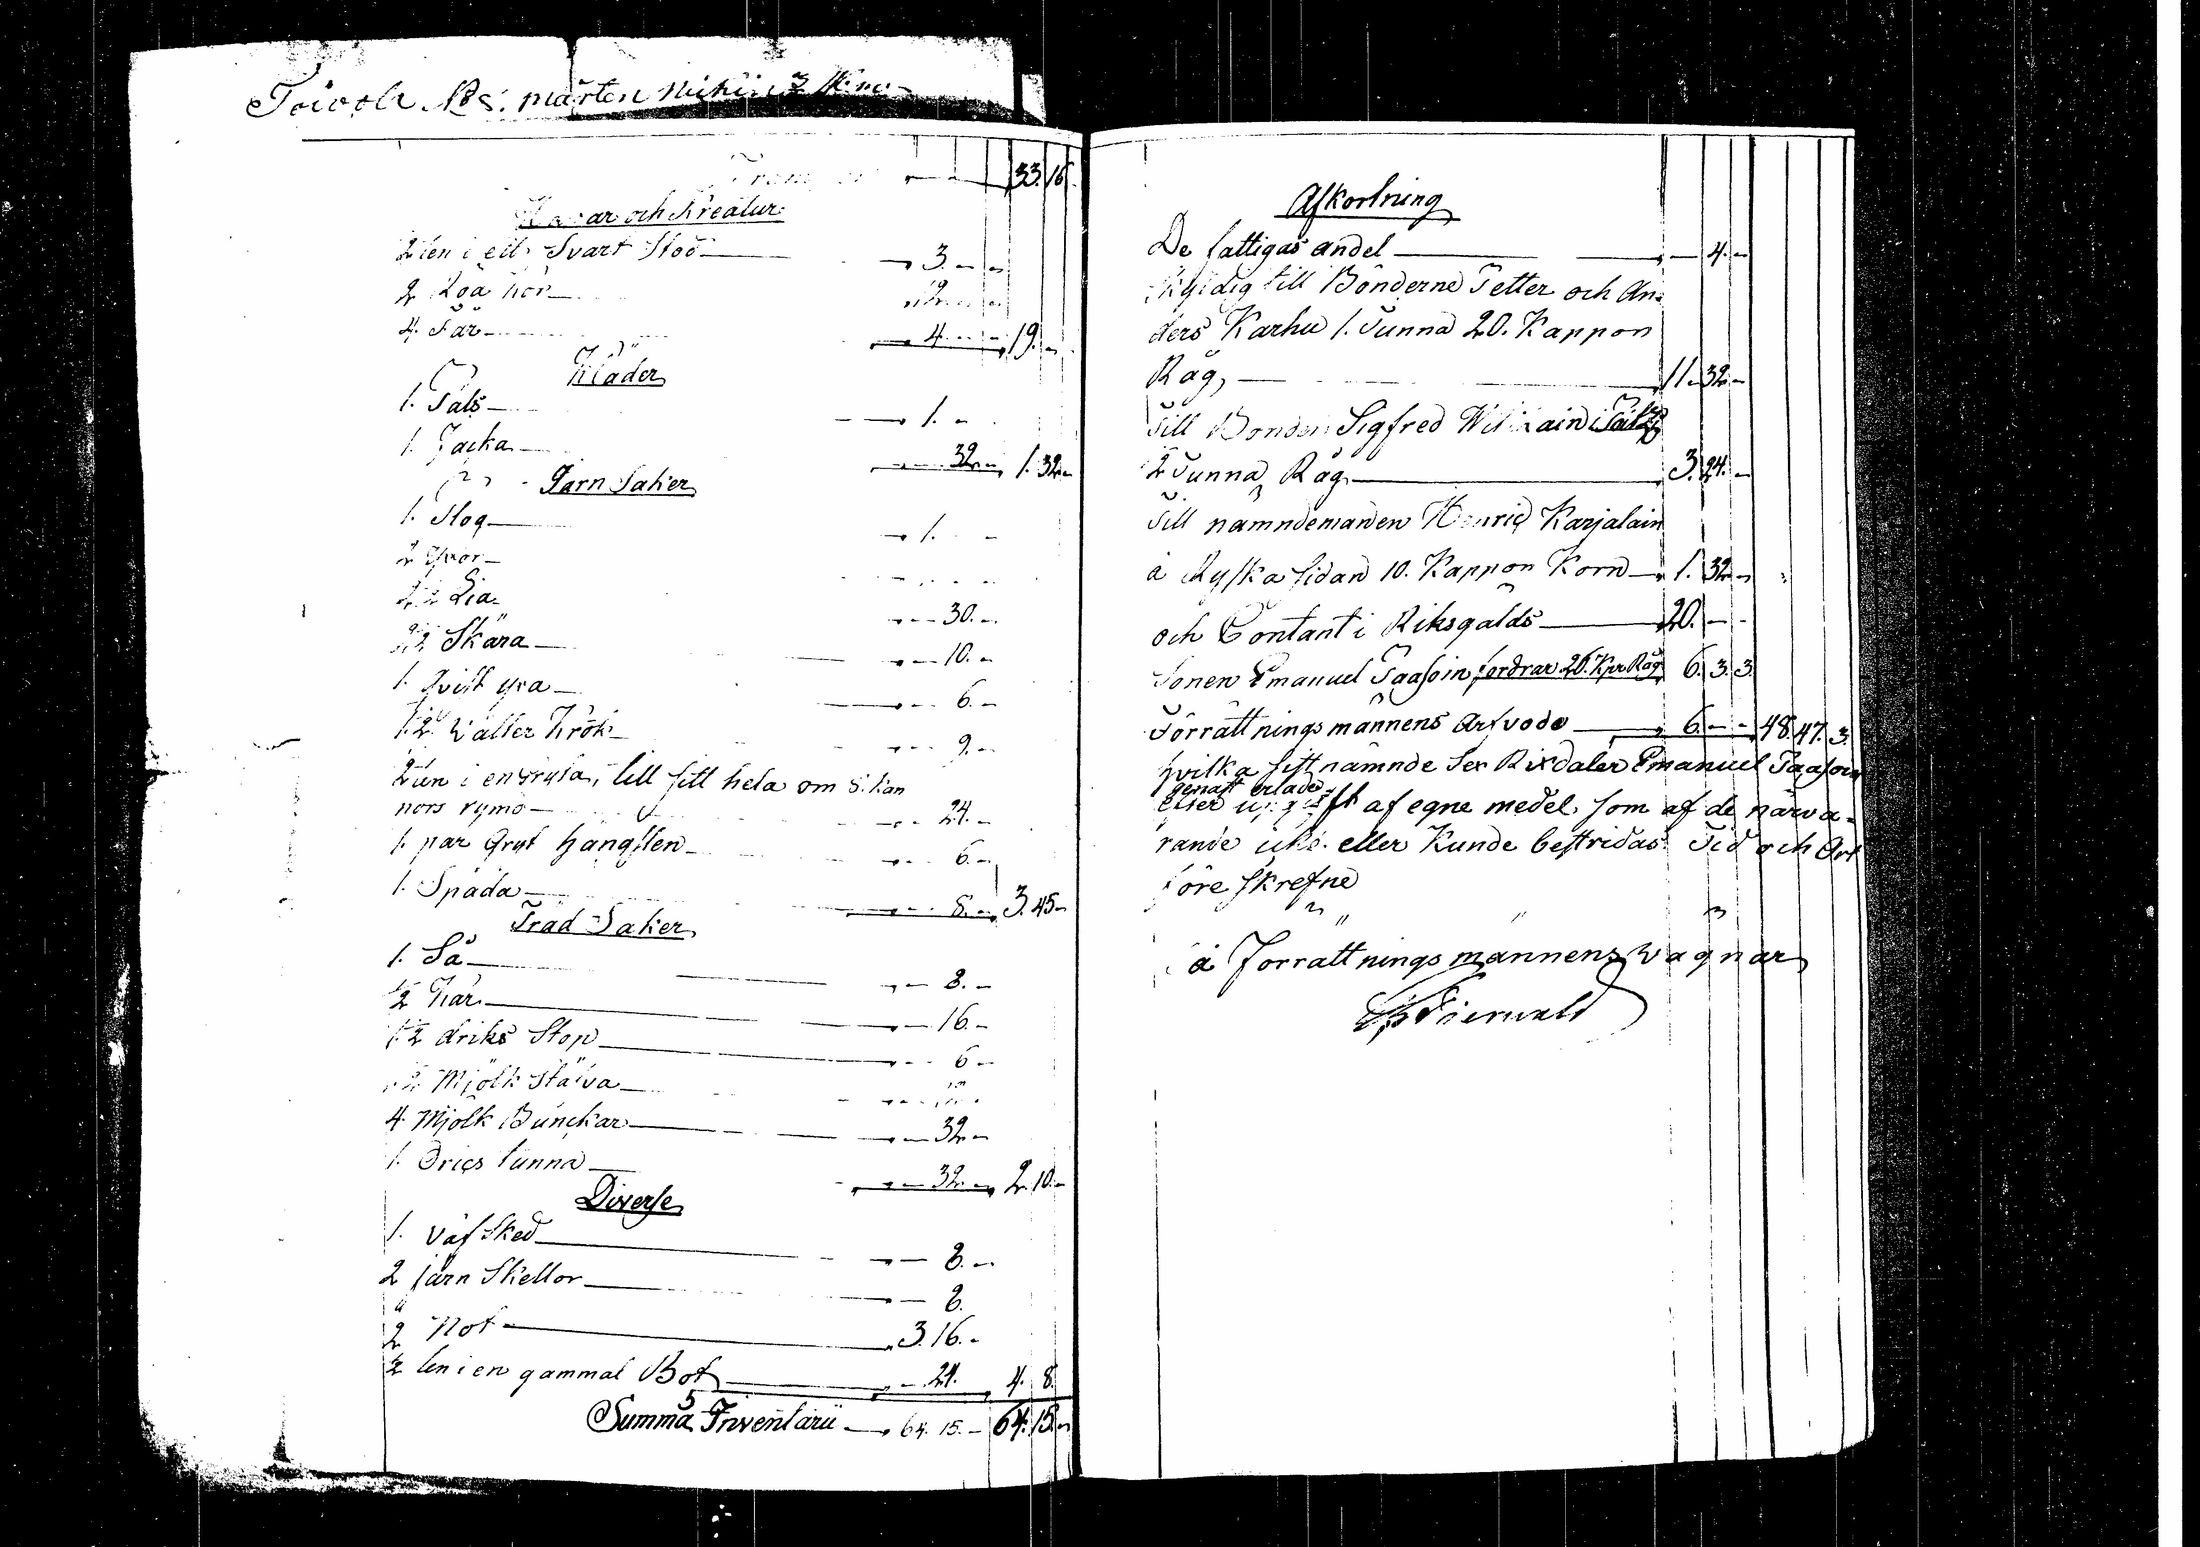 mårten
33. 16.
och Kreatur
i ett Svart Stoö — 3. — —
2 Röa Kor — 12. — —
4. Får — 4. — — 19. —
Kläder
1. Päls — 1. —
1. Jacka — 32. — 1. 32. —
Järn Saker
1. Plog — 1. —
½ Lia — 30. —
½ Skära — 10. —
1. qvist yxa — 6. —
Krok — 9. —
½ till sitt hela om 5. kan
nors rymd — 24. —
1. par Gryt hängslen — 6. —
1. Spada — 8. — 3. 45. —
Träd Saker
1. Så — 8. —
½ Kar — 16. —
1½ driks Stop — 6 —
Mjölk Stäfva —
4. Mjölk Bunckar — 32 —
1. Drics tunna — 32. — 2. 10. —
Diverse
1. Väf Sked — 8. —
2 järn Skellor — 8.
½ Not — 3. 16. —
½ len i en gammal Bot — 24. 4. 8.
Summa Inventarii — 64. 15. — 64. 15. —
Afkortning
De fattigas andel — 4. —
Skyldig till Bönderne Petter och An-
ders Karhu 1. Tunna 20. Kappon
Råg, — 11. 32. —
Till Bonden Sigfred
½ Tunna Råg — 3. 24. —
Till nämndemanden Henric Karjalain
å Ryska sidan 10. Kappon Korn — 1. 32 —
och Contant i Riksgälds — 20. — —
Sonen Emanuel Paasoin fordrar 26. Kpr Råg 6. 3. 3.
Förrättnings männens Arfvode — 6. — — 48. 47. 3.
hvilka sist nämnde Sex Rixdaler Emanuel Paasoin
genast erlade
af egne medel, som af de närva-
rande icke eller Kunde bestridas. Tid och Ort
före skrefne
å Förrättnings männens vägnar